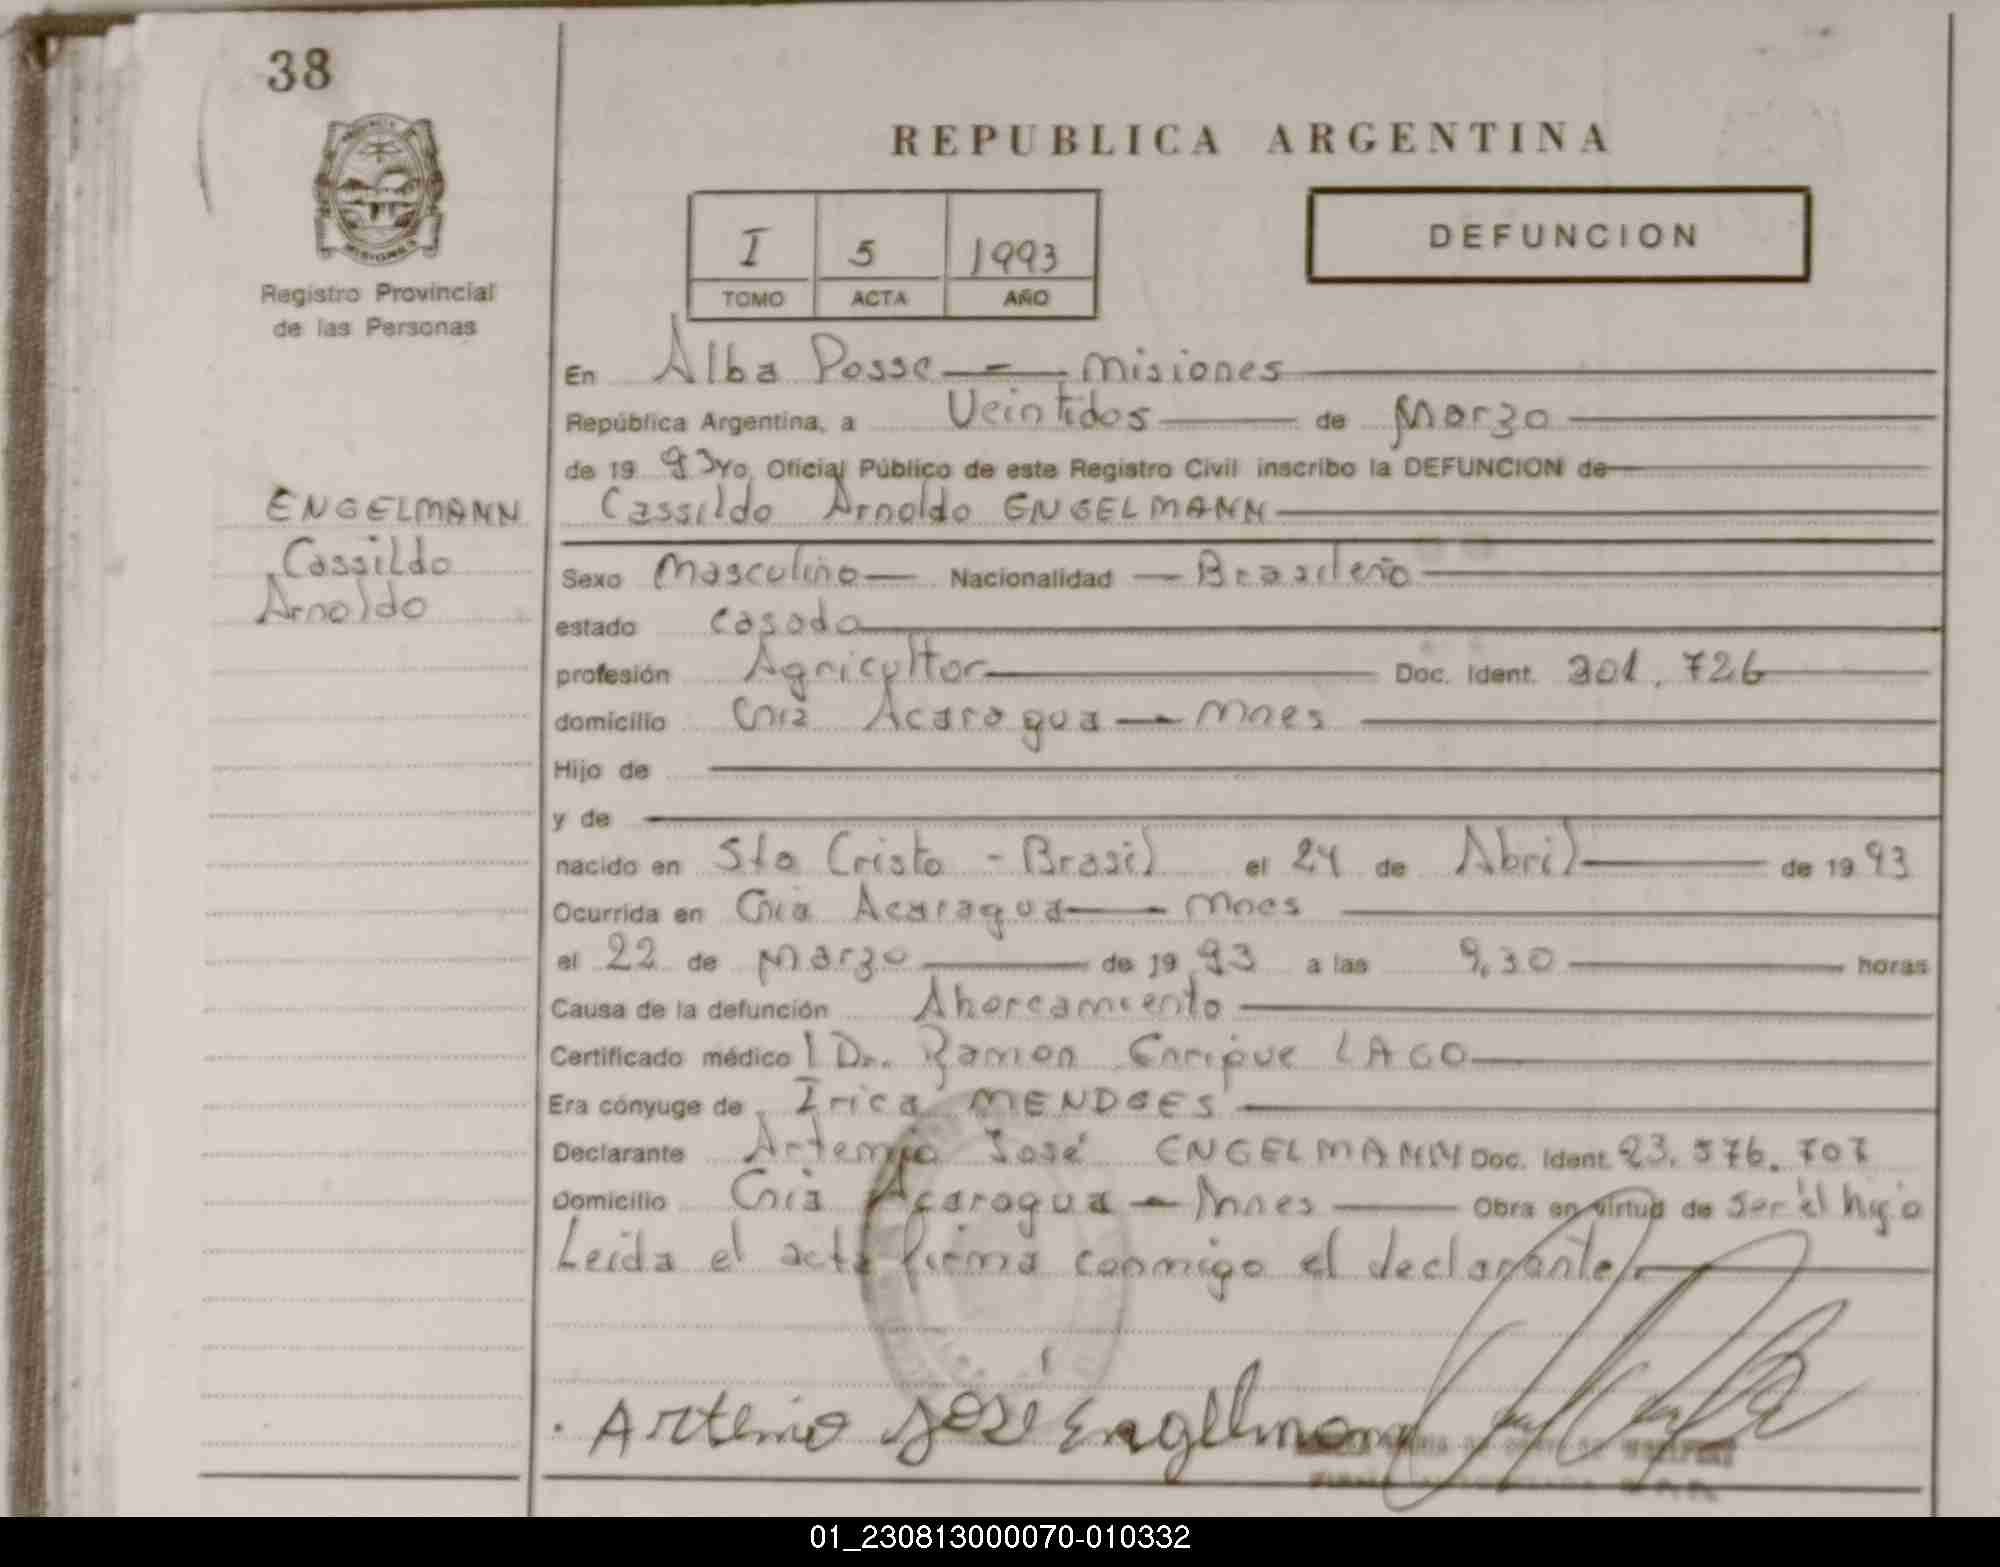 38
REPUBLICA ARGENTINA
DEFUNCION
I 5 1993
TOMO ACTA AÑO
Registro Provincial
de las Personas
En Alba Posse — Misiones
República Argentina, a Veintidos de Marzo
de 19 93 Yo, Oficial Público de este Registro Civil inscribo la DEFUNCION de
ENGELMANN
Cassildo
Arnoldo
Cassildo Arnoldo ENGELMANN
Sexo Masculino Nacionalidad Brasileño
estado Casado
profesión Agricultor Doc. Ident. 301.726
domicilio Cnia Acaragua — Mnes
Hijo de
y de
nacido en Sto Cristo - Brasil el 24 de Abril de 19 93
Ocurrida en Cnia Acaragua — Mnes
el 22 de Marzo de 19 93 a las 9,30 horas
Causa de la defunción Ahorcamiento
Certificado médico Dr. Ramon Enrique LAGO
Era cónyuge de Irica MENDGES
Declarante Artemio José ENGELMANN Doc. Ident. 23.576.707
Domicilio Cnia Acaragua — Mnes Obra en virtud de ser el hijo
Leida el acta firma conmigo el declarante.
Artemio José Engelmann
01_230813000070-010332